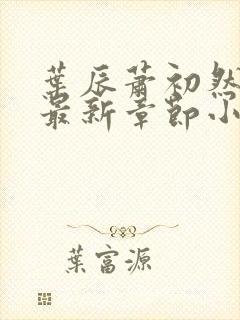 葉辰蕭初然
最新章節小
葉富源